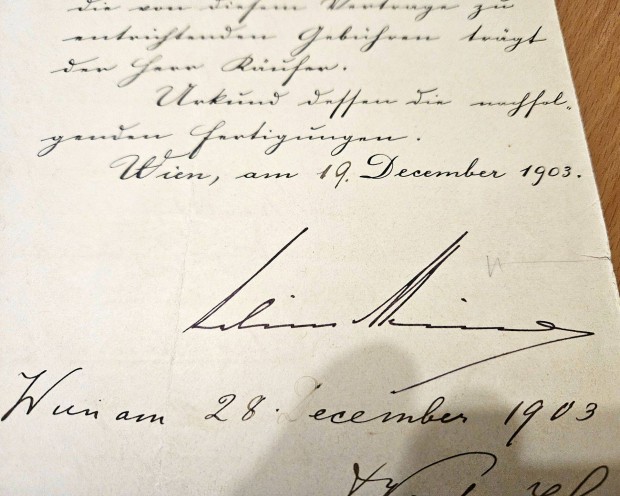 die von diesem Vertrage zu
entrichtenden Gebühren trägt
der Herr Käufer.
Urkund dessen die nachfol-
genden Fertigungen.
Wien, am 19. December 1903.
Wien am 28. December 1903